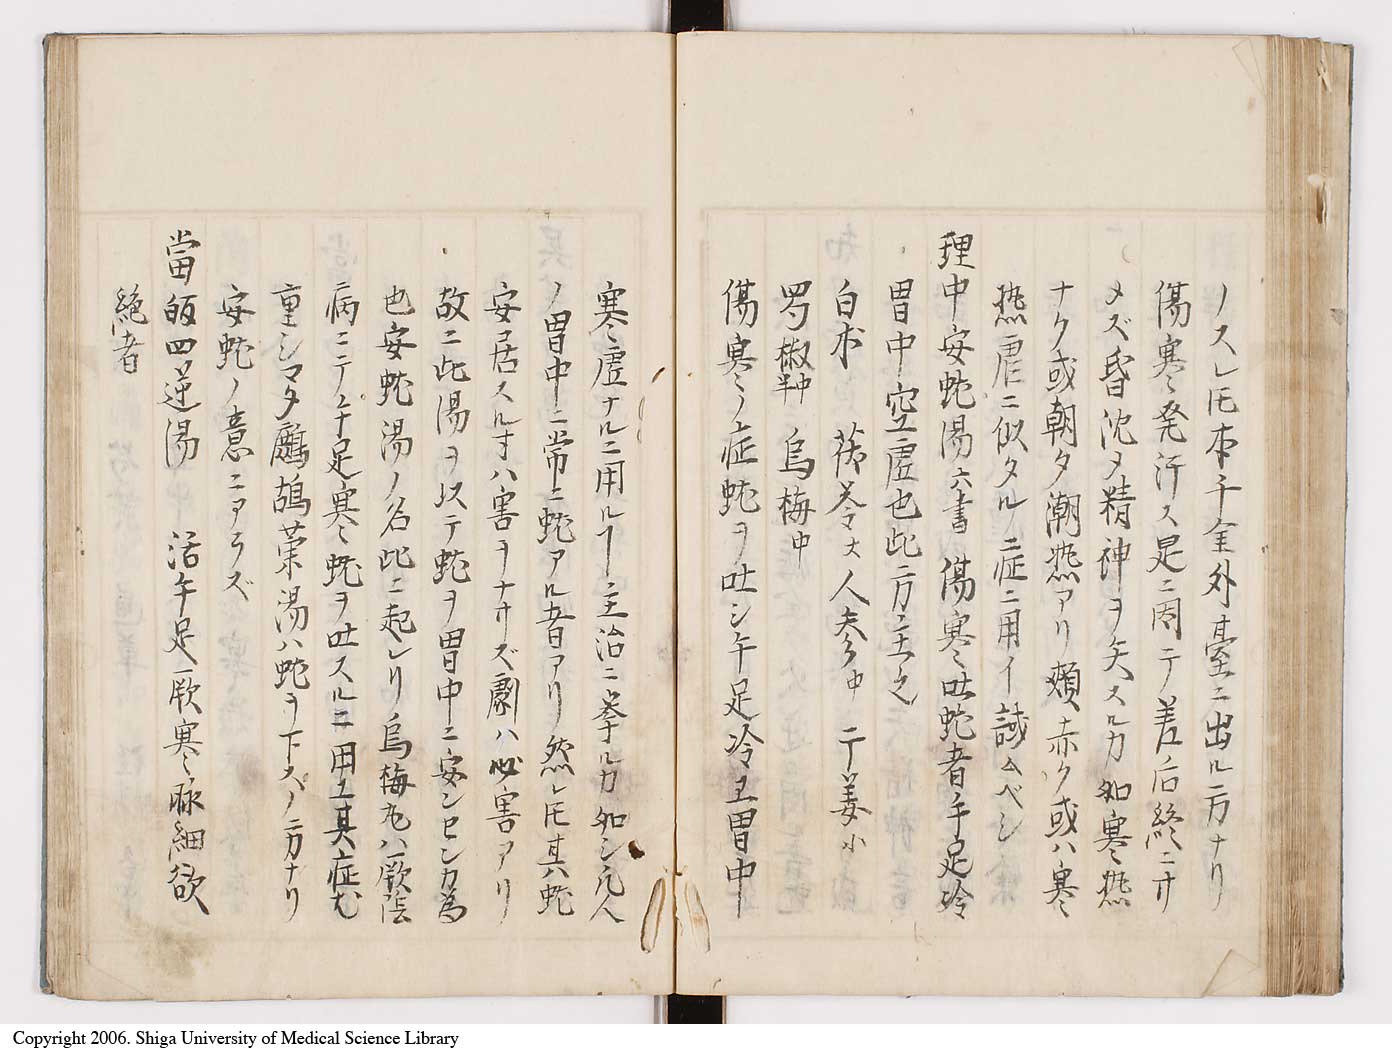 ノスレ𪜈本千金外臺ニ出ル方ナリ
傷寒発汗ス是ニ因テ差后終ニサ
メズ昏沈メ精神ヲ失スルカ如寒熱
ナク或朝夕潮熱アリ頬赤ク或ハ寒
熱虐ニ似タルノ症ニ用イ誠ムベシ
理中安蛇湯 六書 傷寒吐蛇者手足冷
胃中空虚也此方主之
白朮 茯苓大 人参中 干姜小
蜀椒中 烏梅中
傷寒ノ症蛇ヲ吐シ手足冷エ胃中
寒虚ナルニ用ルヿ主治ニ挙ルカ如シ凡人
ノ胃中ニ常ニ蛇アル者アリ然レ𪜈其蛇
安居スルオハ害ヲナサズ劇ハ必害アリ
故ニ此湯ヲ以テ蛇ヲ胃中ニ安ンセンカ為
也安蛇湯ノ名此ニ起レリ烏梅丸ハ厥陰
病ニテ手足寒蛇ヲ吐スルニ用エ其症尤
重シマタ鷓鴣菜湯ハ蛇ヲ下スノ方ナリ
安蛇ノ意ニアラズ
當皈四逆湯 活 手足厥寒脉細欲
絶者
Copyright 2006. Shiga University of Medical Science Library